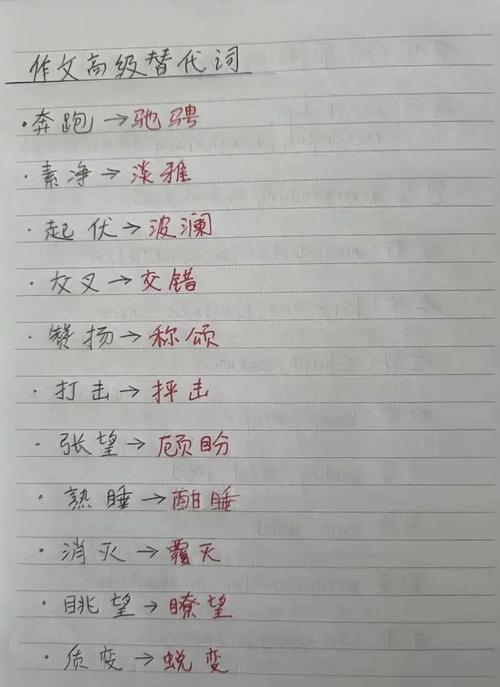 作文高级替代词
·奔跑→驰骋
·素净→淡雅
·起伏→波澜
·交叉→交错
·赞扬→称颂
·打击→抨击
·张望→顾盼
·熟睡→酣睡
·消灭→覆灭
·眺望→瞭望
·质变→蜕变